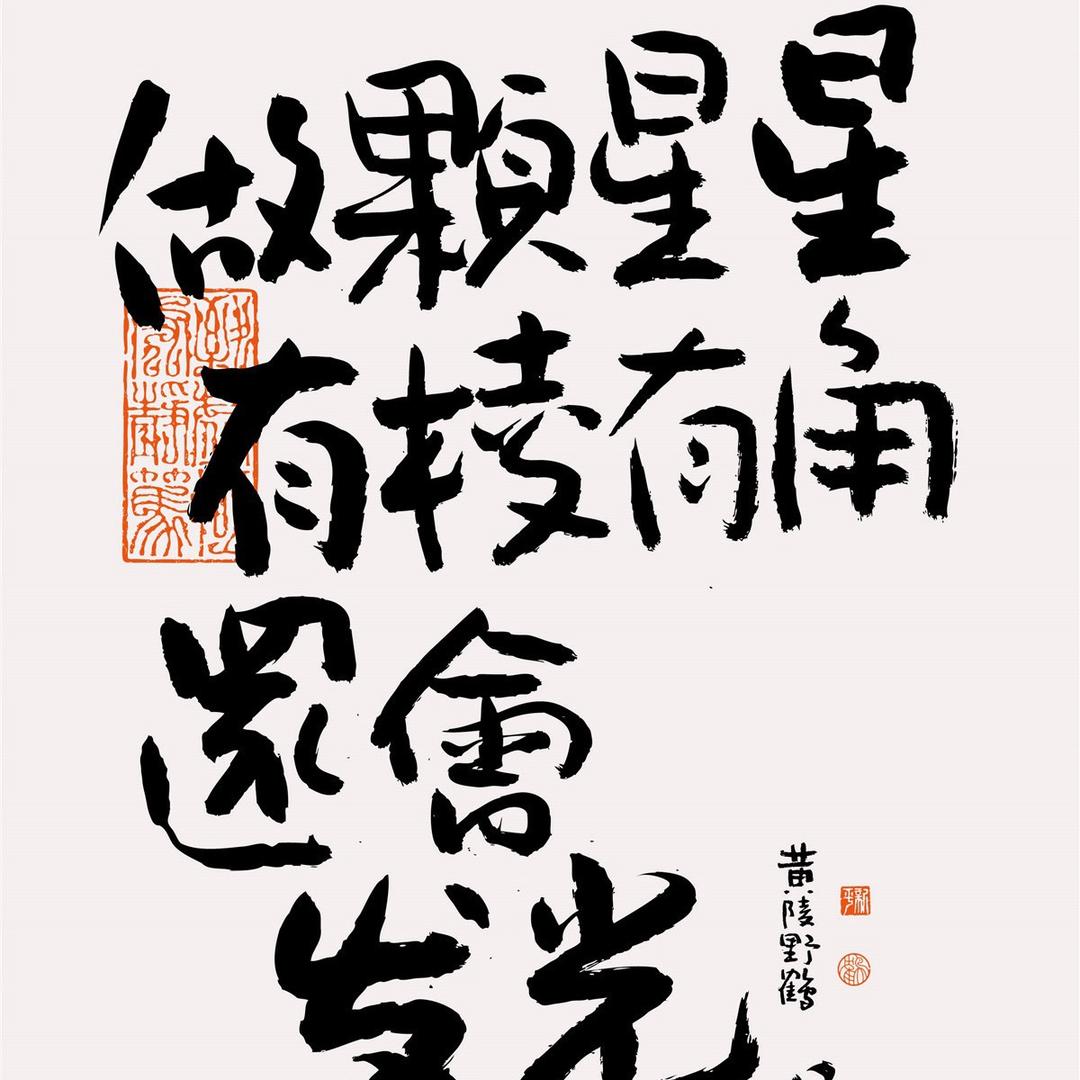 做顆星星
有棱有角
還會
发光
黄陵野鶴